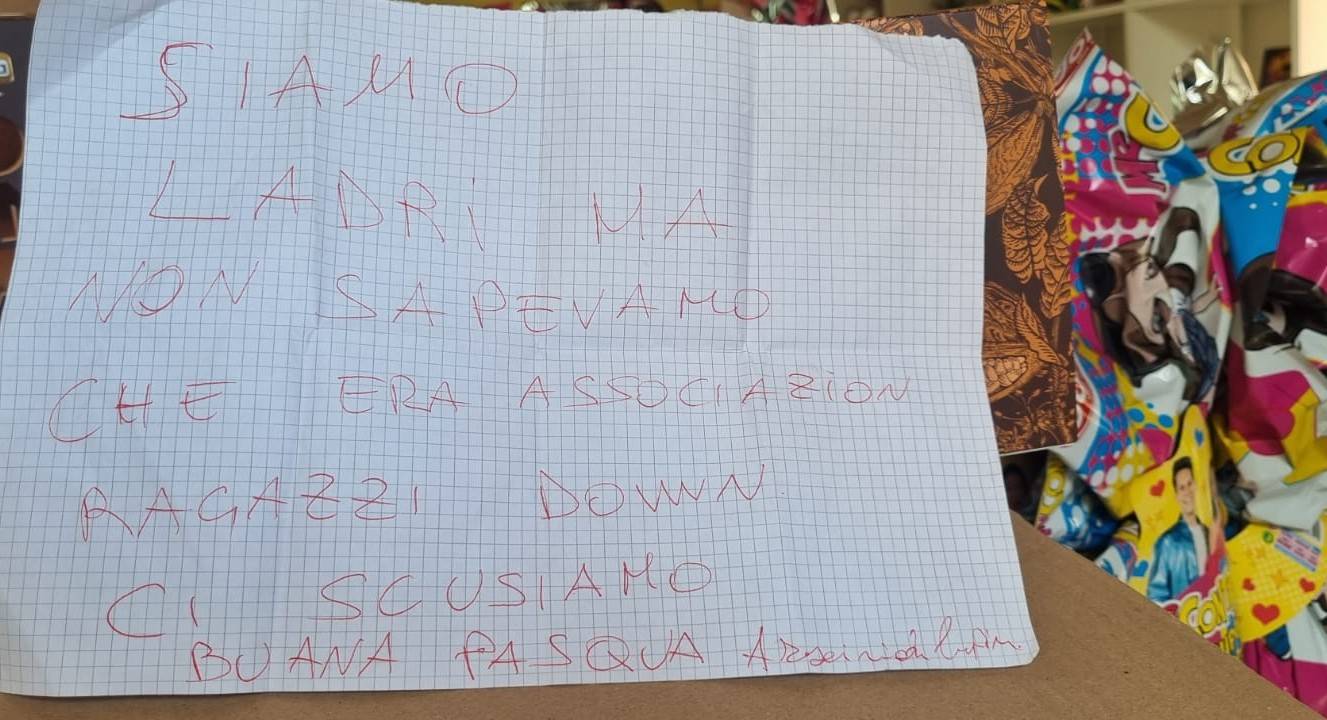 SIAMO
LADRI MA
NON SAPEVAMO
CHE ERA ASSOCIAZION
RAGAZZI DOWN
CI SCUSIAMO
BUANA PASQUA